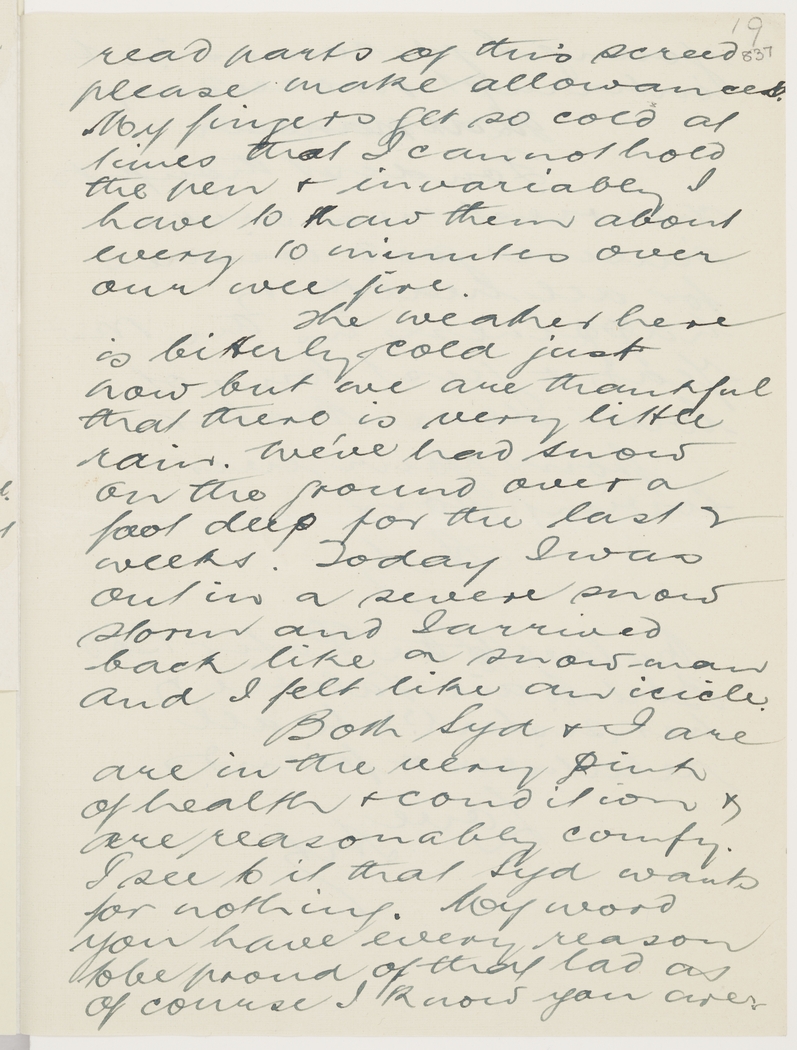 19
837
read parts of this screed
please make allowances.
My fingers get so cold at
times that I cannot hold
the pen & invariably I
have to thaw them about
every 10 minutes over
our wee fire.
The weather here
is bitterly cold just
now but we are thankful
that there is very little
rain. We've had snow
on the ground over a
foot deep for the last 2
weeks. Today I was
out in a severe snow
storm and I arrived
back like a snow-man
and I felt like an icicle.
Both Syd & I are
are in the very pink
of health & condition &
are reasonably comfy.
I see to it that Syd wants
for nothing. My word
you have every reason
to be proud of that lad as
of course I know you are.